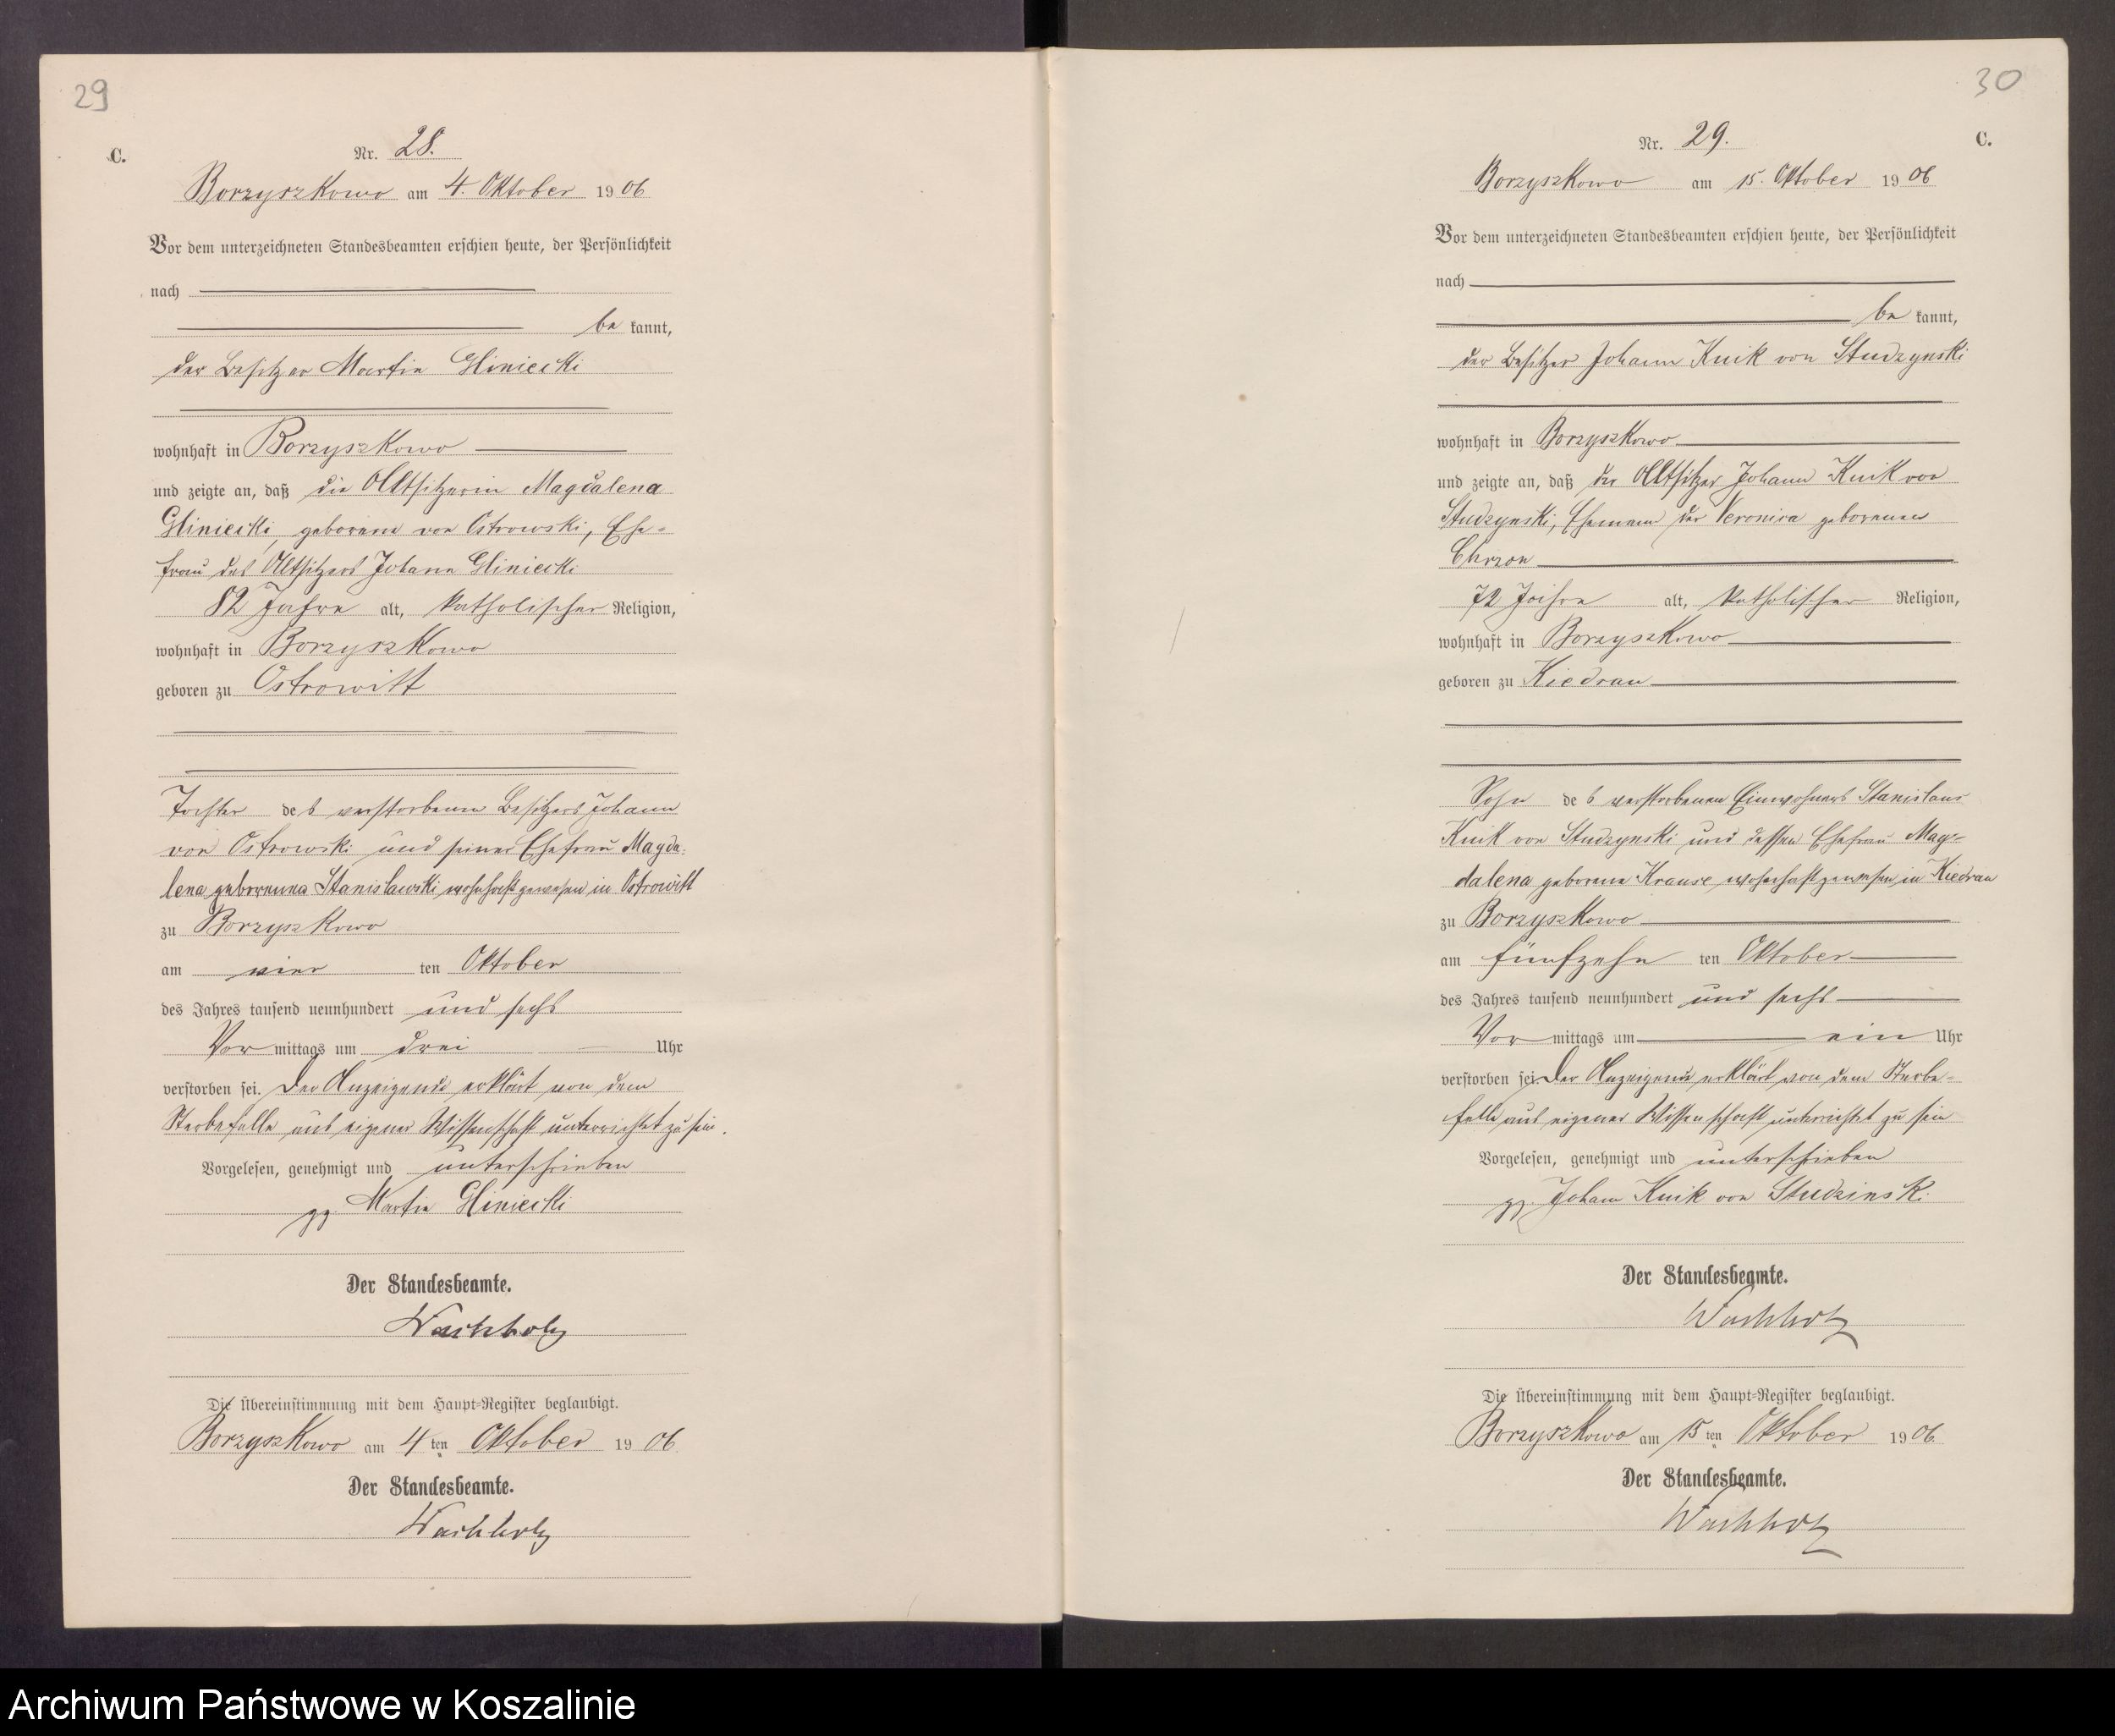 29
C.
Nr. 28.
Borzyszkowo am 4. Oktober 1906
Vor dem unterzeichneten Standesbeamten erschien heute, der Persönlichkeit
nach
be kannt,
der Besitzer Martin Gliniecki
wohnhaft in Borzyszkowo
und zeigte an, daß die Altsitzerin Magdalena
Gliniecki, geborene von Ostrowski, Ehe-
frau des Altsitzers Johann Gliniecki
82 Jahre alt, katholischer Religion,
wohnhaft in Borzyszkowo
geboren zu Ostrowitt
Tochter des verstorbenen Besitzers Johann
von Ostrowski und seiner Ehefrau Magda-
lena geborenen Stanislawski wohnhaft gewesen in Ostrowitt
zu Borzyszkowo
am vier ten Oktober
des Jahres tausend neunhundert und sechs
Vor mittags um drei Uhr
verstorben sei. Der Anzeigende erklärt von dem
Sterbefalle aus eigener Wissenschaft unterrichtet zu sein.
Vorgelesen, genehmigt und unterschrieben
gz. Martin Gliniecki
Der Standesbeamte.
Wachholz
Die Übereinstimmung mit dem Haupt-Register beglaubigt.
Borzyszkowo am 4ten Oktober 1906.
Der Standesbeamte.
Wachholz
30
C.
Nr. 29.
Borzyszkowo am 15. Oktober 1906
Vor dem unterzeichneten Standesbeamten erschien heute, der Persönlichkeit
nach
be kannt,
der Besitzer Johann Kuik von Studzynski
wohnhaft in Borzyszkowo
und zeigte an, daß der Altsitzer Johann Kuik von
Studzynski, Ehemann der Veronica geborenen
Chrzon
72 Jahre alt, katholischer Religion,
wohnhaft in Borzyszkowo
geboren zu Kiedrau
Sohn des verstorbenen Einwohners Stanislaus
Kuik von Studzynski und dessen Ehefrau Mag-
dalena geborene Krause wohnhaft gewesen in Kiedrau
zu Borzyszkowo
am fünfzehn ten Oktober
des Jahres tausend neunhundert und sechs
Vor mittags um ein Uhr
verstorben sei. Der Anzeigende erklärt von dem Sterbe-
falle aus eigener Wissenschaft unterrichtet zu sein
Vorgelesen, genehmigt und unterschrieben
gz. Johann Kuik von Studzinski.
Der Standesbeamte.
Wachholz
Die Übereinstimmung mit dem Haupt-Register beglaubigt.
Borzyszkowo am 15ten Oktober 1906.
Der Standesbeamte.
Wachholz
Archiwum Państwowe w Koszalinie